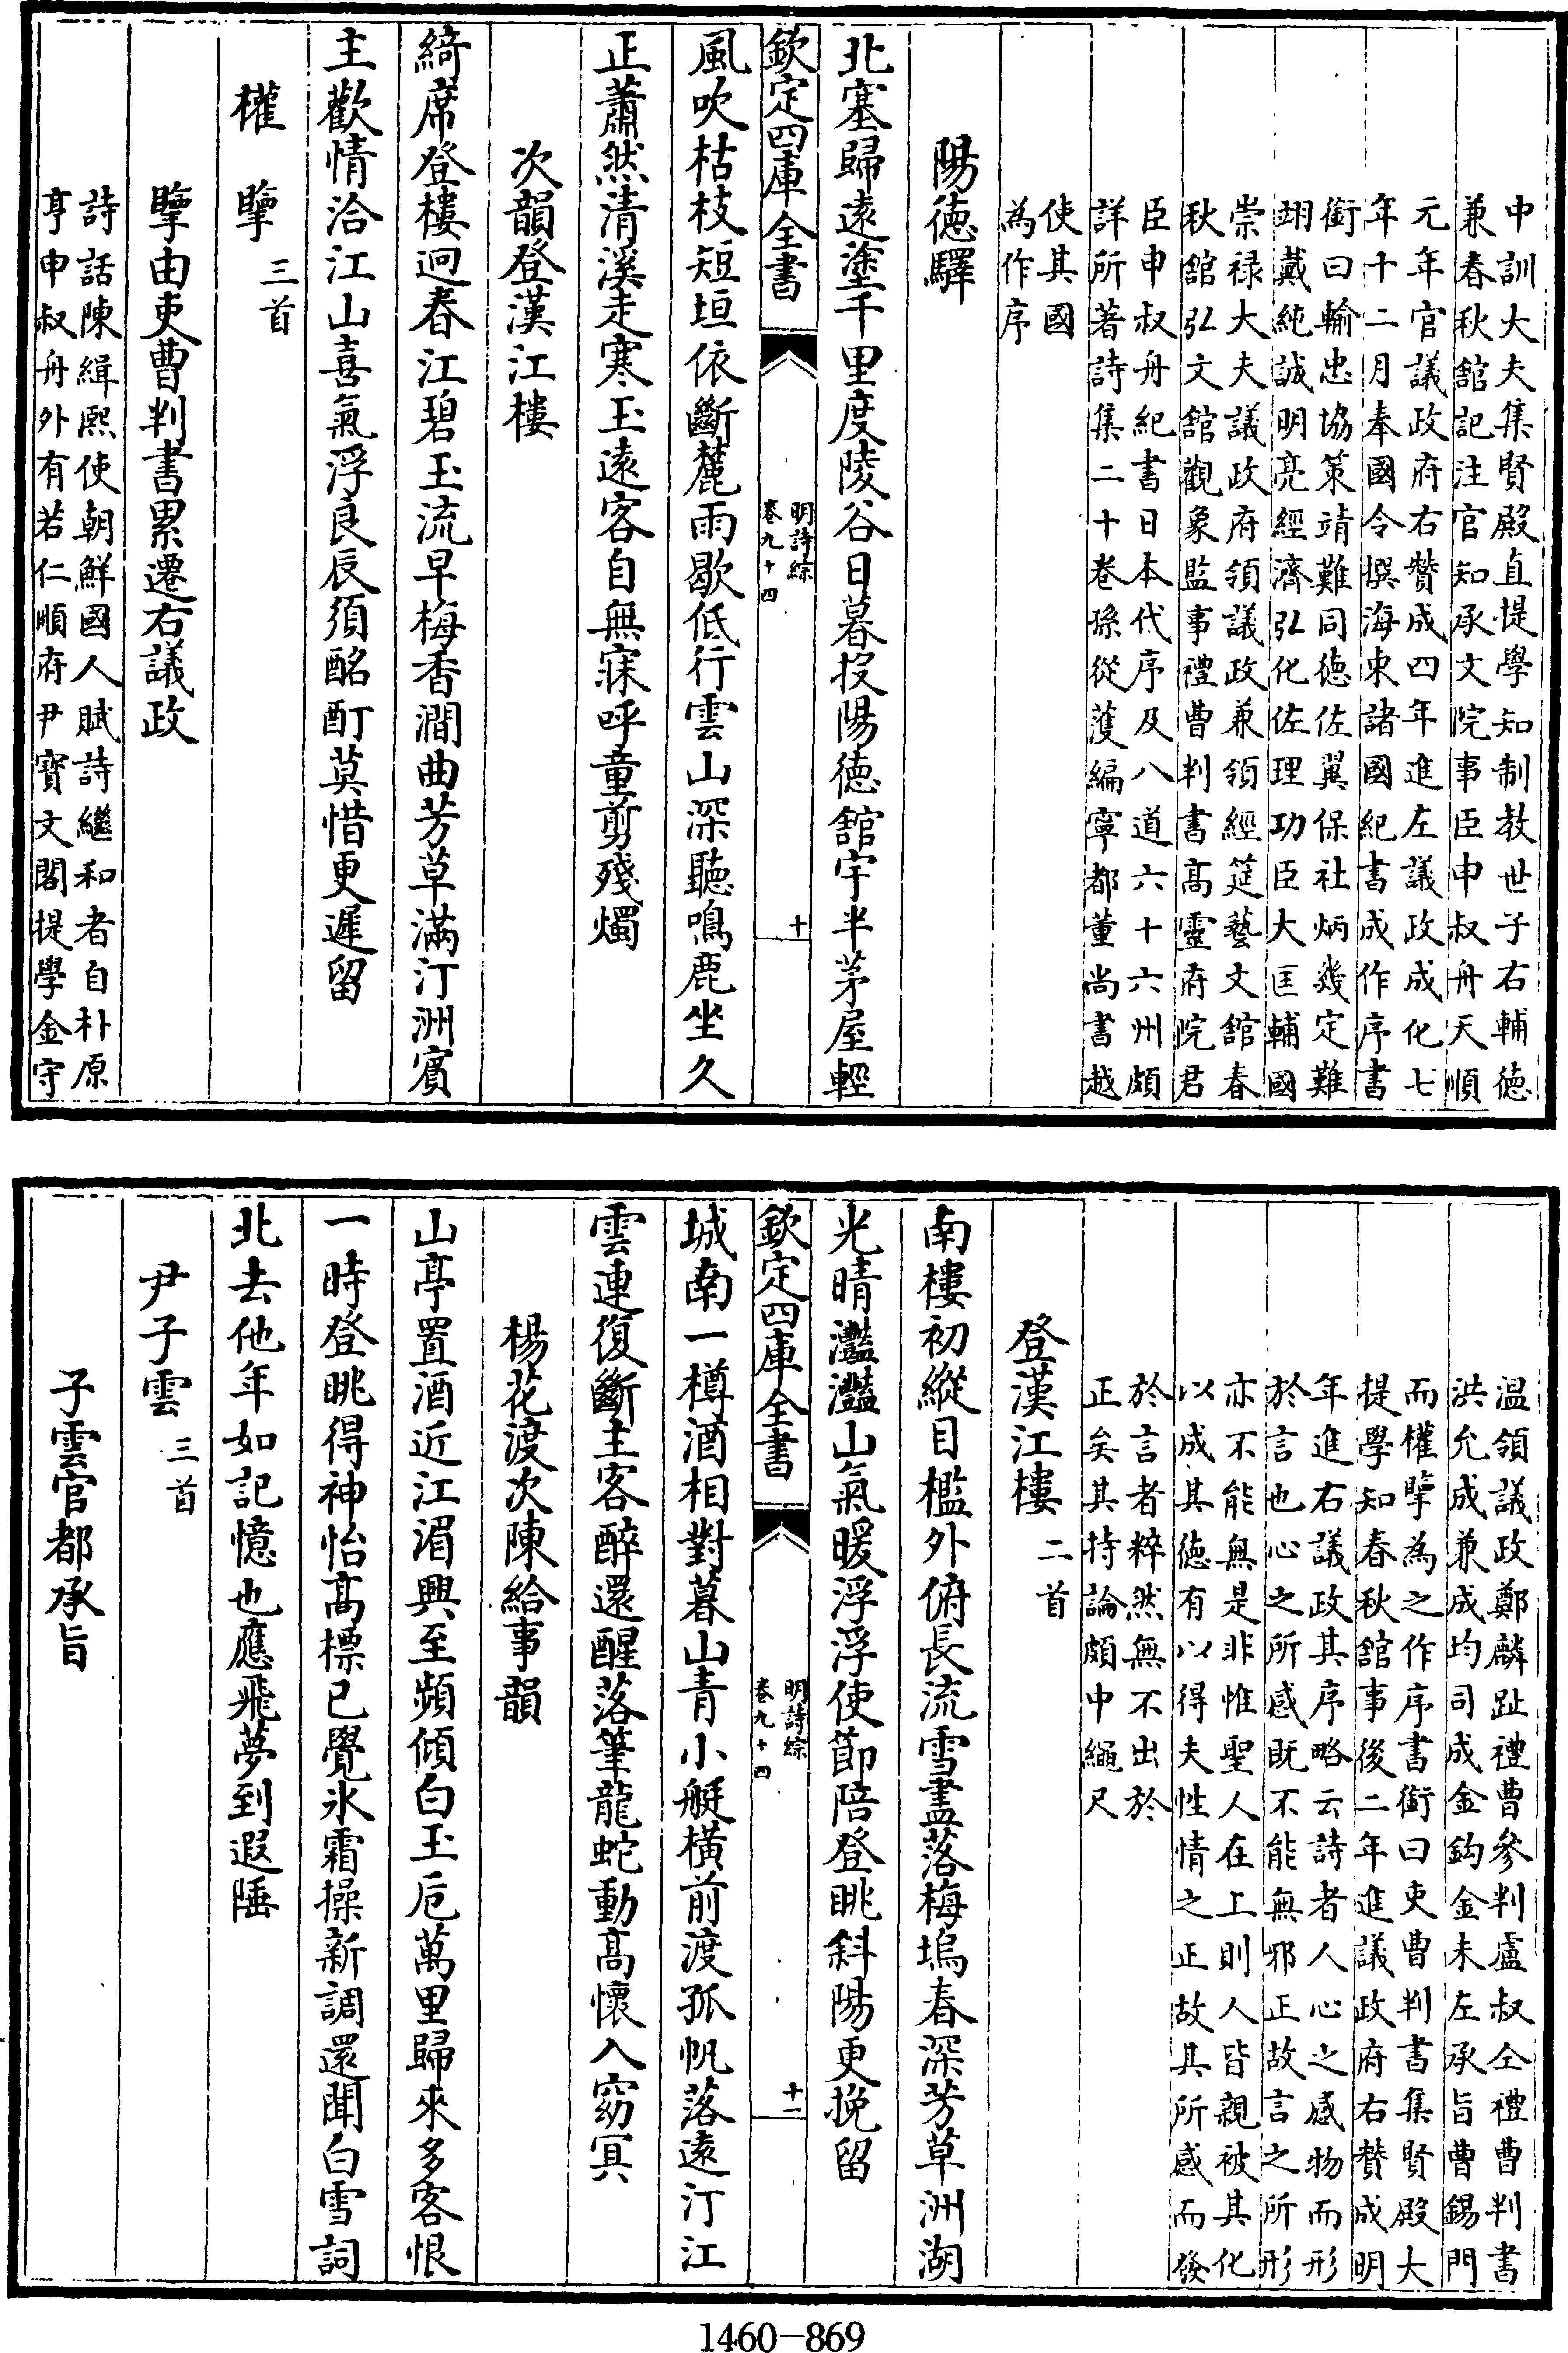 中訓大夫集賢殿直提學知制教世子右輔德
兼春秋館記注官知承文院事臣申叔舟天順
元年官議政府右贊成四年進左議政成化七
年十二月奉國令撰海東諸國紀書成作序書
銜曰輸忠協策靖難同德佐翼保社炳幾定難
翊戴純誠明亮經濟弘化佐理功臣大匡輔國
崇祿大夫議政府領議政兼領經筵藝文館春
秋館弘文館觀象監事禮曹判書高靈府院君
臣申叔舟紀書日本代序及八道六十六州頗
詳所著詩集二十卷孫從濩編寧都董尚書越
使其國
為作序
陽德驛
北塞歸遠塗千里度陵谷日暮投陽德館宇半茅屋輕
欽定四庫全書
明詩綜
卷九十四
十
風吹枯枝短垣依斷麓雨歇低行雲山深聽鳴鹿坐久
正蕭然清溪走寒玉遠客自無寐呼童剪殘燭
次韻登漢江樓
綺席登樓迥春江碧玉流早梅香澗曲芳草滿汀洲賓
主歡情洽江山喜氣浮良辰須酩酊莫惜更遲留
權擥三首
擥由吏曹判書累遷右議政
詩話陳緝熙使朝鮮國人賦詩繼和者自朴原
亨申叔舟外有若仁順府尹寶文閣提學金守
温領議政鄭麟趾禮曹參判盧叔仝禮曹判書
洪允成兼成均司成金鈞金末左承旨曹錫門
而權擥為之作序書銜曰吏曹判書集賢殿大
提學知春秋館事後二年進議政府右贊成明
年進右議政其序略云詩者人心之感物而形
於言也心之所感既不能無邪正故言之所形
亦不能無是非惟聖人在上則人皆親被其化
以成其德有以得夫性情之正故其所感而發
於言者粹然無不出於
正矣其持論頗中繩尺
登漢江樓二首
南樓初縱目檻外俯長流雪盡落梅塢春深芳草洲湖
光晴灧灧山氣暖浮浮使節陪登眺斜陽更挽留
欽定四庫全書
明詩綜
卷九十四
十一
城南一樽酒相對暮山青小艇橫前渡孤帆落遠汀江
雲連復斷主客醉還醒落筆龍蛇動高懷入窈冥
楊花渡次陳給事韻
山亭置酒近江湄興至頻傾白玉卮萬里歸來多客恨
一時登眺得神怡高標已覺氷霜操新調還聞白雪詞
北去他年如記憶也應飛夢到遐陲
尹子雲三首
子雲官都承旨
1460-869